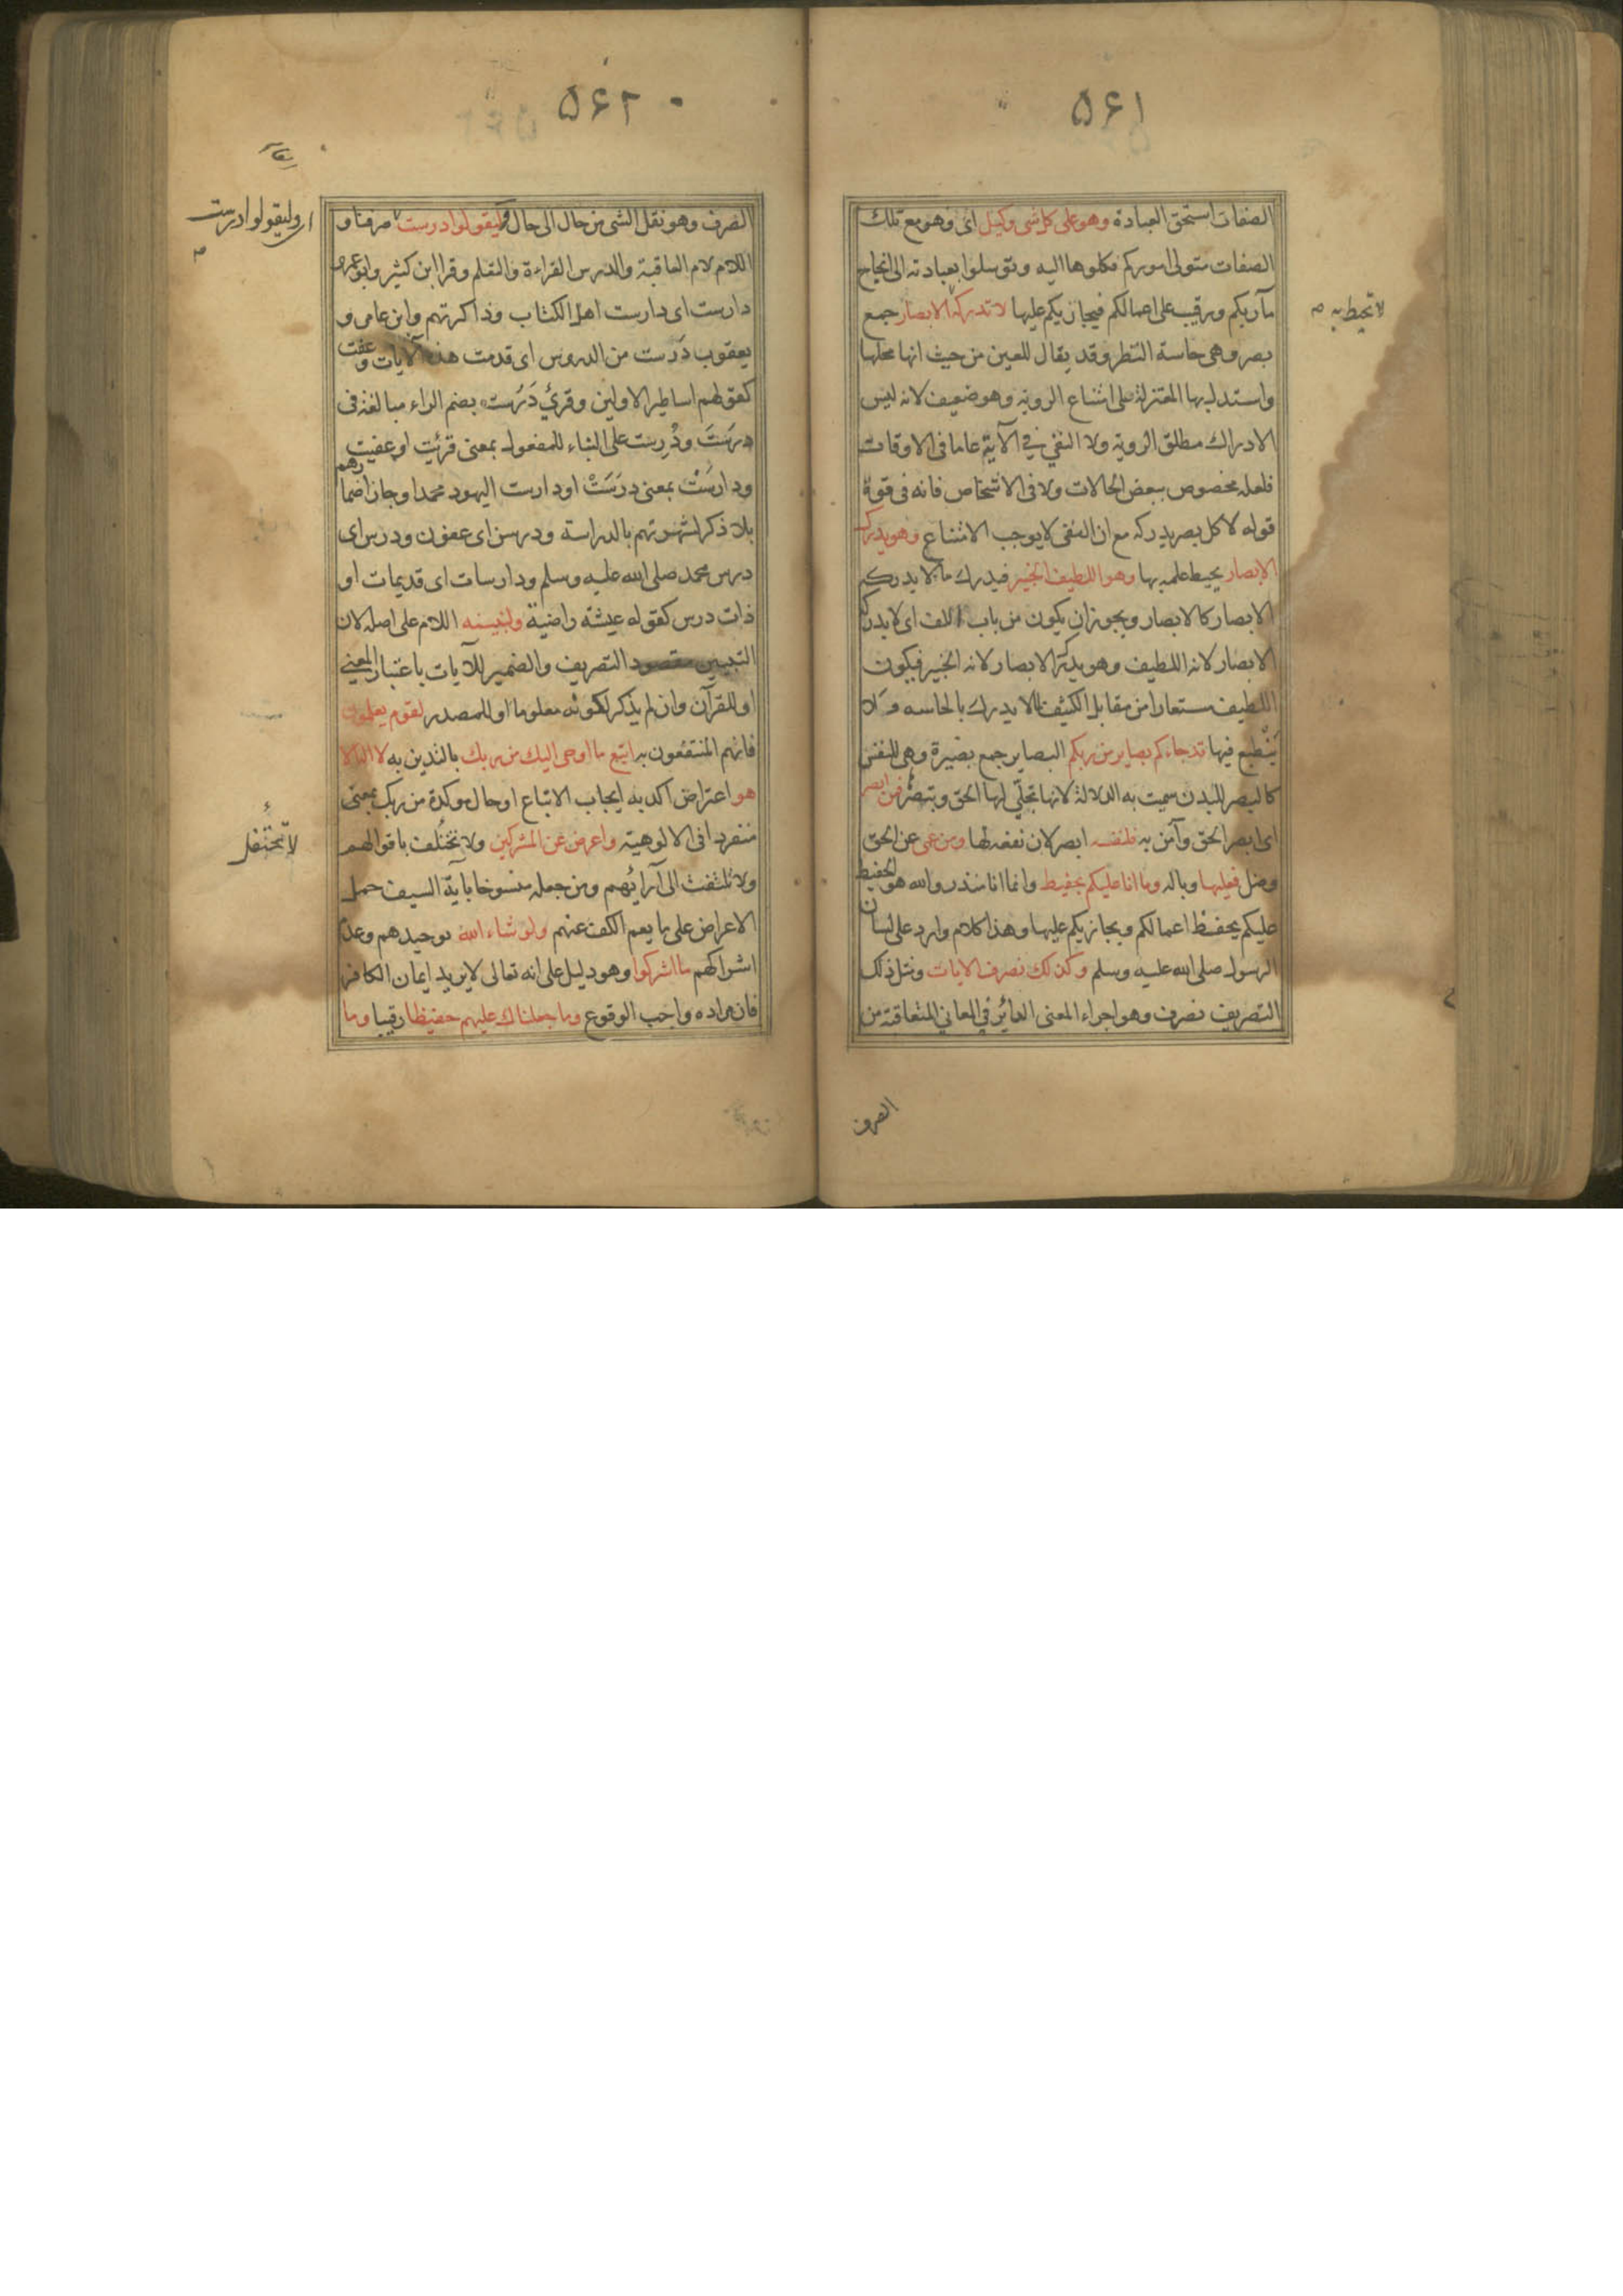 ۵۶۱
الصفات استحق العبادة وهو على كل شى وكيل اى وهو مع تلك
الصفات متولى اموركم فكلوها اليه وتوسلوا بعبادته الى انجاح
مآربكم ورقيب على اعمالكم فيجازيكم عليها لا تدركه الابصار جمع
لا تحيط به
بصر وهى حاسة النظر وقد يقال للعين من حيث انها محلها
واستدل بها المعتزلة على امتناع الروية وهو ضعيف لانه ليس
الادراك مطلق الروية ولا النفي في الآية عاما فى الاوقات
فلعله مخصوص ببعض الحالات ولا فى الاشخاص فانه فى قوة
قوله لا كل بصر يدركه مع ان النفى لا يوجب الامتناع وهو يدرك
الابصار يحيط علمه بها وهو اللطيف الخبير فيدرك ما لا يدركه
الابصار كالابصار ويجوز ان يكون من باب اللف اى لا يدركه
الابصار لانه اللطيف وهو يدرك الابصار لانه الخبير فيكون
اللطيف مستعارا من مقابل الكثيف لما لا يدرك بالحاسه ولا
ينطبع فيها قد جاءكم بصاير من ربكم البصاير جمع بصيرة وهى للنفس
كالبصر للبدن سميت به الدلالة لانها تجلي لها الحق وتبصر فمن ابصر
اى ابصر الحق وآمن به فلنفسه ابصر لان نفعه لها ومن عمى عن الحق
وضل فعليها وباله وما انا عليكم بحفيظ وانما انا منذر والله هو الحفيظ
عليكم يحفظ اعمالكم ويجازيكم عليها وهذا كلام وارد على لسان
الرسول صلى الله عليه وسلم وكذلك نصرف الايات ومثل ذلك
التصريف نصرف وهو اجراء المعنى الدائر في المعاني المتعاقبة من
الصرف
۵۶۲
الصرف وهو نقل الشى من حال الى حال وليقولوا درست صرفنا و
اى وليقولوا درست
اللام لام العاقبة والدرس القراءة والتعلم وقرا ابن كثير وابو عمرو
دارست اى دارست اهل الكتاب وذاكرتهم وابن عامر و
يعقوب دَرَست من الدروس اى قدمت هذه الآيات وعفت
كقولهم اساطير الاولين وقرئ دَرُست بضم الراء مبالغة فى
درَسَتَ ودُرِست على البناء للمفعول بمعنى قرئت او عفيت
ودارسَتْ بمعنى درَسَتْ او دارست اليهود محمدا وجاز اضمارهم
بلا ذكر لشهرتهم بالدراسة ودرسن اى عفون ودرس اى
درس محمد صلى الله عليه وسلم ودارسات اى قديمات او
ذات درس كقوله عيشة راضية ولنبينه اللام على اصله لان
التبيين مقصود التصريف والضمير للآيات باعتبار المعنى
او للقرآن وان لم يذكر لكونه معلوما او للمصدر لقوم يعلمون
فانهم المنتفعون به اتبع ما اوحى اليك من ربك بالتدين به لا اله الا
هو اعتراض اكد به ايجاب الاتباع او حال موكدة من ربك بمعنى
منفردا فى الالوهية واعرض عن المشركين ولا تختلف باقوالهم
لا تحتفل
ولا تلتفت الى آرائهم ومن جعله منسوخا باية السيف حمل
الاعراض على ما يعم الكف عنهم ولو شاء الله توحيدهم وعدم
اشراكهم ما اشركوا وهو دليل على انه تعالى لا يريد ايمان الكافر
فان مراده واجب الوقوع وما جعلناك عليهم حفيظا رقيبا وما